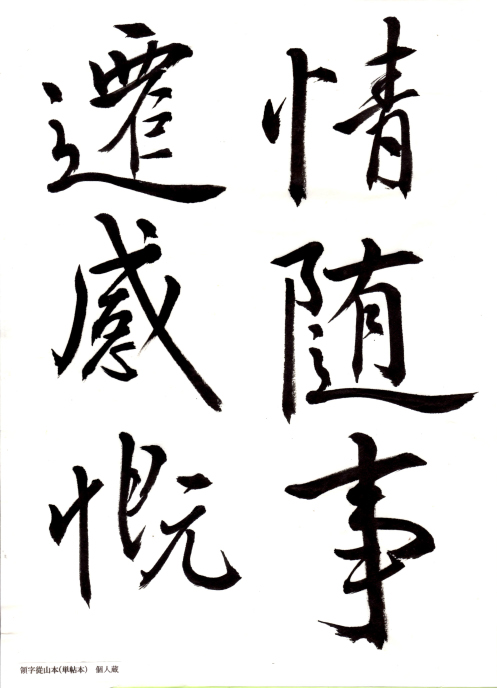 情随事
遷感慨
領字從山本(単帖本) 個人蔵